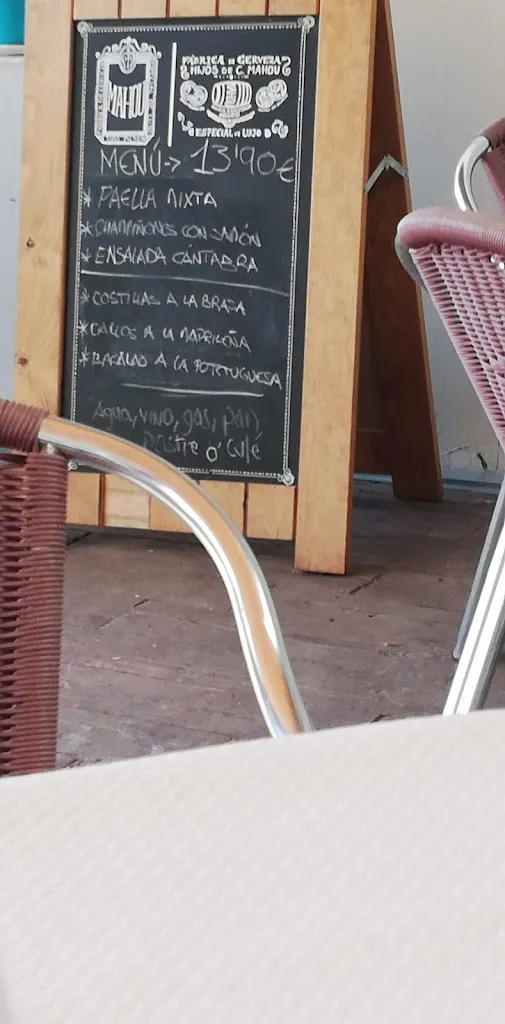 MAHOU
FÁBRICA DE CERVEZA
HIJOS DE C. MAHOU
ESPECIAL DE LUJO
MENÚ → 13'90€
* PAELLA MIXTA
* CHAMPIÑONES CON JAMÓN
* ENSALADA CÁNTABRA
* COSTILLAS A LA BRASA
* CALLOS A LA MADRILEÑA
* BACALAO A LA PORTUGUESA
Agua, vino, gas, pan,
Postre o' Café